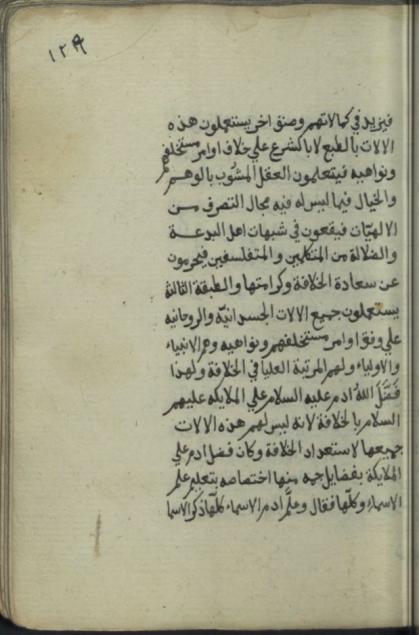 ١٢٩
فيزيد في كمالاتهم وصنف اخر يستعملون هذه
الالات بالطبع لا بالشرع علي خلاف اوامر مستخلفهم
ونواهيه فيتعلمون العقل المشوب بالوهم
والخيال فيما ليس له فيه مجال التصرف من
الالهيات فيقعون في شبهات اهل البدعة
والضلالة من المتكلمين والمتفلسفين فيحرمون
عن سعادة الخلافة وكرامتها والطبقة الثالثة
يستعملون جميع الالات الجسدانيّه والروحانيه
علي وفق اوامر مستخلفهم ونواهيه وهم الانبياء
والاولياء ولهم المرتبة العليا في الخلافة ولهذا
فَضَّلَ اللهُ ادم عليه السلام علي الملايكه عليهم
السلام بالخلافة لانه ليس لهم هذه الالات
جميعها لاستعداد الخلافة وكان فضل ادم علي
الملايكة بفضايل جمه منها اختصاصه بتعليم علم
الاسماء وكلّها فقال وعلَّم ادم الاسماء كلّها ذكر الاسما